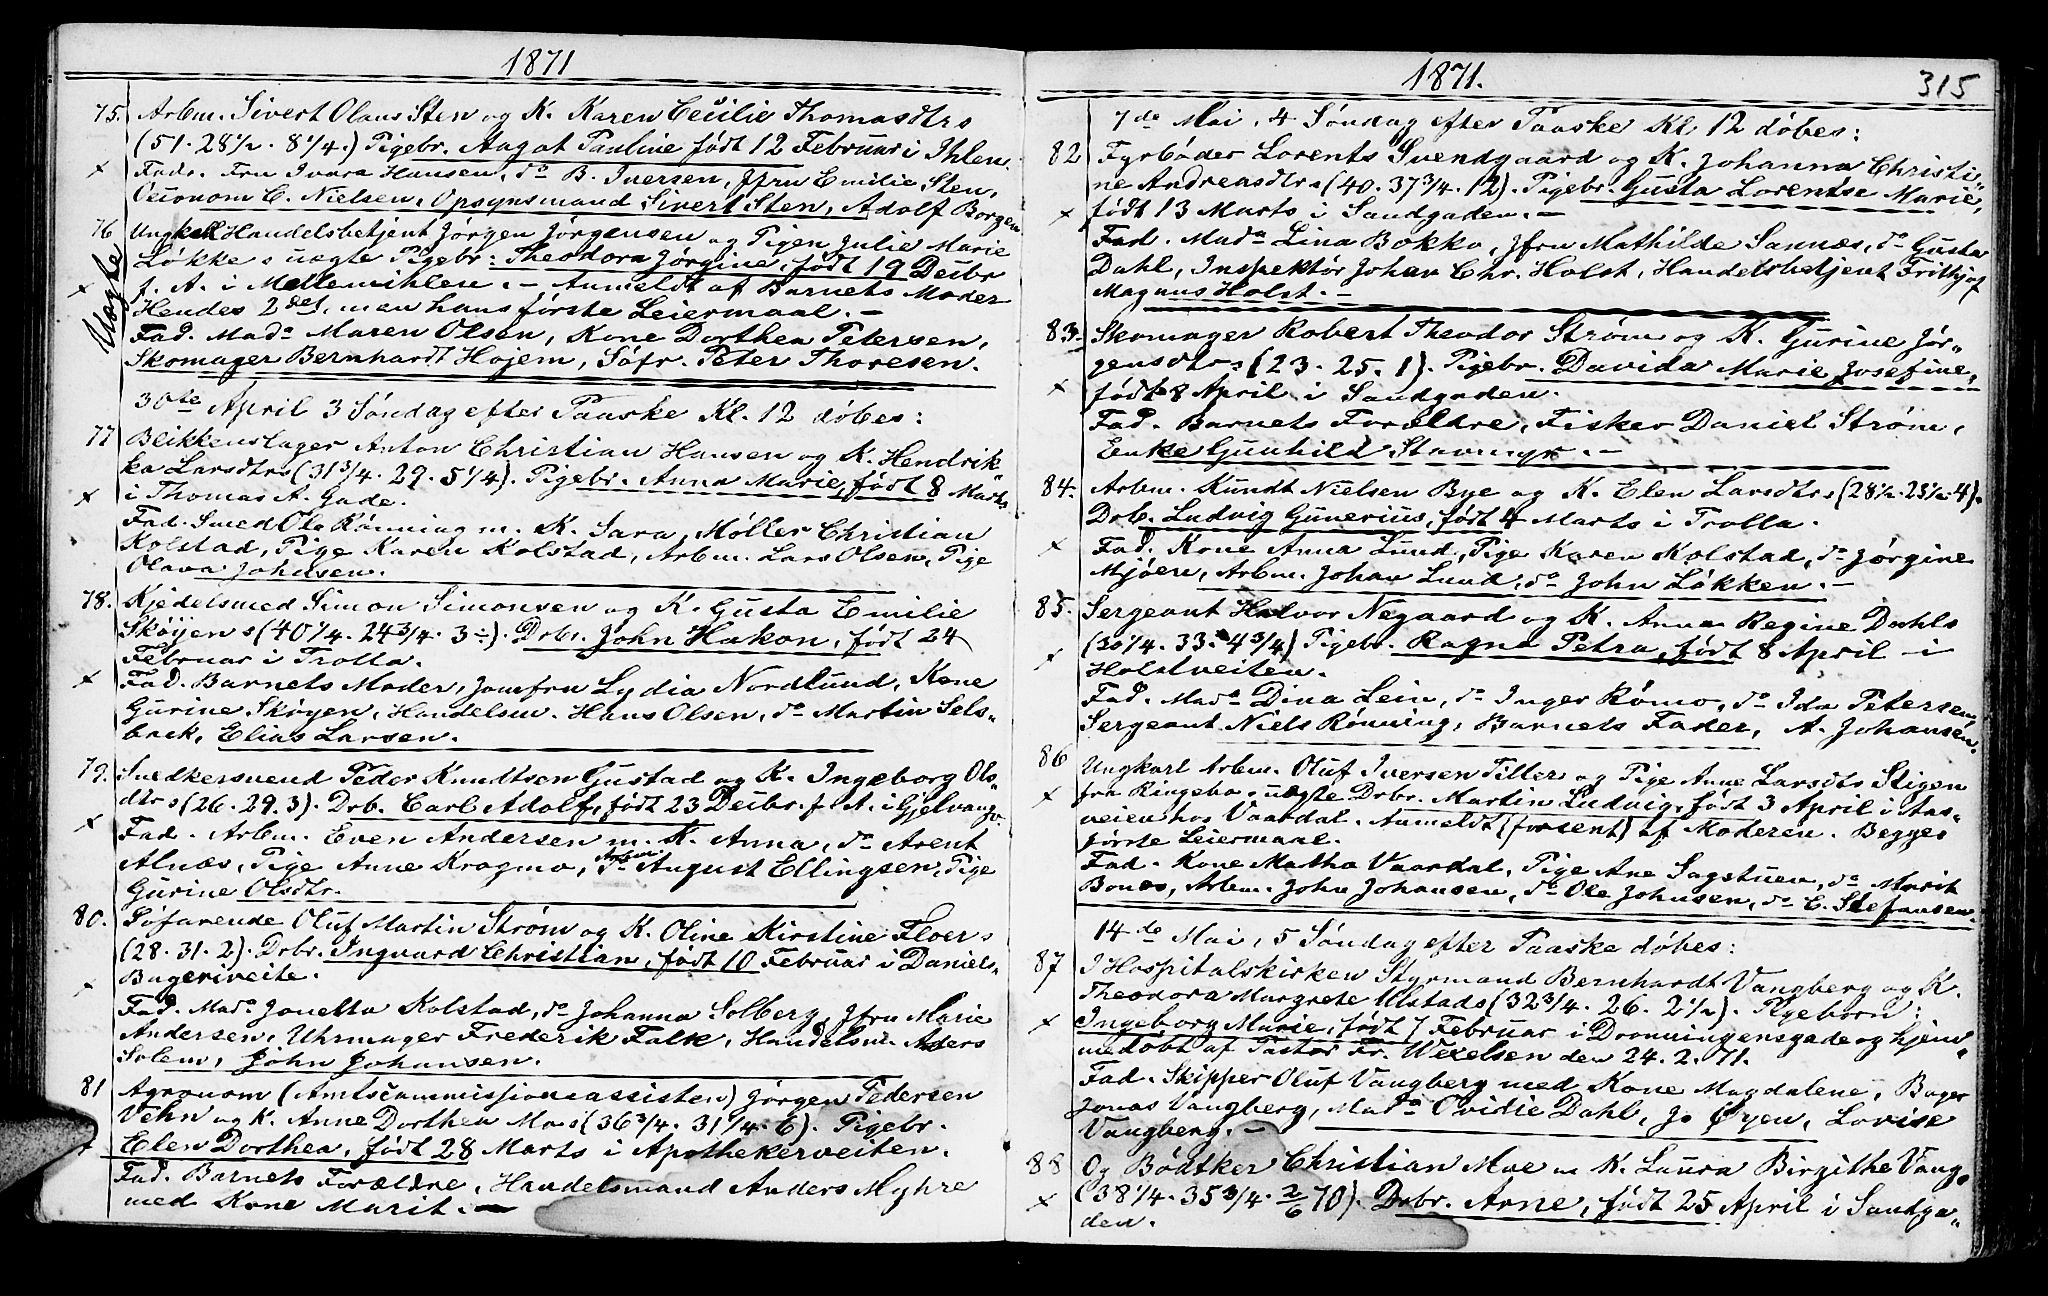 1871
75. Arbm. Sivert Olaus Sten og K. Karen Cecilie Thomasdtrs
(51. 28½. 8¼.) Pigebr. Aagot Pauline født 12 Februar i Ihlen.
Fadr. Fru Ivara Hansen, do B. Iversen, Jfru Emilie Sten,
Oeconom C. Nielsen, Opsynsmand Sivert Sten, Adolf Borgen
76 Ungkarl Handelsbetjent Jørgen Jørgensen og Pigen Julie Marie
Løkkes uægte Pigebr. Theodora Jørgine, født 19 Decbr
f. A. i Mellemihlen. - Anmeldt af Barnets Moder
Hendes 2det, men hans første Leiermaal. -
Uægte
Fad. Mada Maren Olsen, Kone Dorthea Petersen,
Skomager Bernhardt Hojem, Søfr. Peter Thoresen.
30te April 3 Søndag efter Paaske Kl. 12 døbes:
77 Blikkenslager Anton Christian Hansen og K. Hendrik"
ka Larsdtrs (31¾. 29. 5¼). Pigebr. Anna Marie, født 8 Marts
i Thomas A. Gade.
Fad. Smed Ole Rønning m. K. Sara, Møller Christian
Kolstad, Pige Karen Kolstad, Arbm. Lars Olsen, Pige
Olava Johnsen.
78. Kjedelsmed Simon Simonsen og K. Gusta Emilie
Skøyens (40¼. 24¾. 3÷). Drbr. John Hakon, født 24
Februar i Trolla.
Fad. Barnets Moder, Jomfru Lydia Nordlund, Kone
Gurine Skøyen, Handelsm. Hans Olsen, do Martin Sels"
bak, Elias Larsen.
79. Snedkersvend Peder Knudtsen Gustad og K. Ingeborg Ols"
dtrs (26. 29. 3). Drb. Carl Adolf, født 23 Decbr. f. A. i Gjelvangv.
Fad. Arbm. Even Andersen m. K. Anna, do Arent
Alnæs, Pige Anne Kragmo, Arbm. August Ellingsen, Pige
Gurine Olsdtr.
80. Søfarende Oluf Martin Strøm og K. Oline Kirstine Floers
(28. 31. 2). Drbr. Ingvard Christian, født 10 Februar i Daniels"
Bugeriveite.
Fad. Mada Jonetta Kolstad, do Johanna Solberg, Jfru Marie
Andersen, Uhrmager Frederik Falk, Handelsm. Anders
Solem, John Johansen.
81 Agronom (Amtscommissionsassistent) Jørgen Pedersen
Vehn og K. Anne Dorthea Moes (36¾. 31¼. 6). Pigebr.
Elen Dorthea, født 28 Marts i Apothekerveiten.
Fad. Barnets Forældre, Handelsmand Anders Myhre
med Kone Marit. -
1871. 315
7de Mai, 4 Søndag efter Paaske Kl. 12 døbes:
82 Fyrbøder Lorents Svendgaard og K. Johanna Christi"
ne Andreasdtrs (40. 37¾. 12). Pigebr. Gusta Lorentse Marie,
født 13 Marts i Sandgaden. -
Fad. Mada Lina Bokko, Jfru Mathilde Sannæs, do Gusta
Dahl, Inspektør Johan Chr. Holst, Handelsbetjent Frithjof
Magnus Holst. -
83. Skomager Robert Theodor Strøm og K. Gurine Jør"
gensdtrs (23. 25. 1). Pigebr. Davida Marie Josefine,
født 8 April i Sandgaden.
Fad. Barnets Forældre, Fisker Daniel Strøm,
Enke Gunhild Stavmyr. -
84. Arbm. Knudt Nielsen Bye og K. Elen Larsdtrs (28½. 25½. 4).
Drb. Ludvig Gunerius, født 4 Marts i Trolla.
Fad. Kone Anna Lund, Pige Karen Kolstad, do Jørgine
Mjøen, Arbm. Johan Lund, do John Løkken. -
85. Sergeant Halvor Negaard og K. Anna Regine Dahls
(30¼. 33. 4¾) Pigebr. Ragna Petra, født 8 April i
Holstveiten.
Fad. Mada Dina Lein, do Inger Rømo, do Ida Petersen,
Sergeant Niels Rønning, Barnets Fader, A. Johansen.
86 Ungkarl Arbm. Oluf Iversen Tiller og Pige Anne Larsdtr Stigen
fra Ringebo, uægte Drbr. Martin Ludvig, født 3 April i Aas"
veien hos Vaardal. Anmeldt (forsent) af Moderen. Begges
første Leiermaal.
Fad. Kone Martha Vaardal, Pige Ane Sagstuen, do Marit
Bonæs, Arbm. John Johansen, do Ole Johnsen, do E. Stefansen.
14de Mai, 5 Søndag efter Paaske døbes:
87 I Hospitalskirken Styrmand Bernhardt Vangberg og K.
Theodora Margrete Ulstads (32¾. 26. 2½). Pigebørn:
Ingeborg Marie, født 7 Februar i Dronningensgade og hjem"
medøbt af Pastor Fr. Wexelsen den 24. 2. 71.
Fad. Skipper Oluf Vangberg med Kone Magdalene, Bager
Jonas Vangberg, Mada Ovidie Dahl, Jo Øyen, Lovise
Vangberg. -
88 Og Bødtker Christian Moe m K. Laura Birgithe Vang"
(38¼. 35¾. 2/6 70). Drbr. Arne, født 25 April i Sandga"
den.